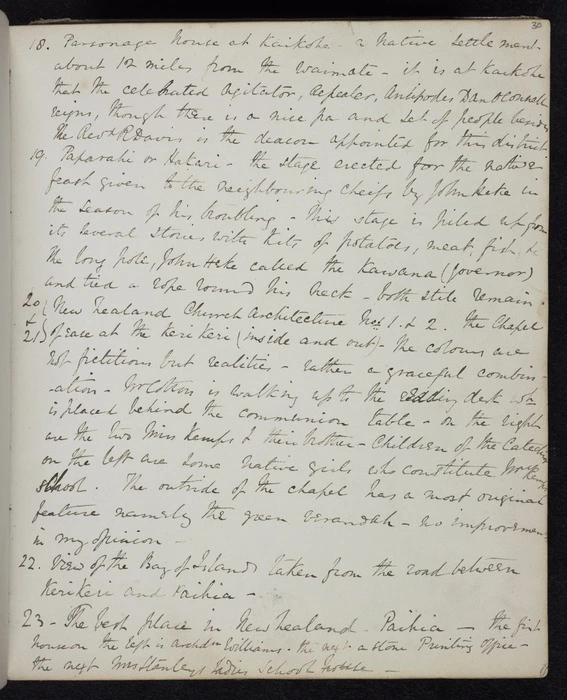 30
18. Parsonage house at Kaikohe - a Native Settlement.
about 12 miles from the Waimate - it is at Kaikohe
that the celebrated Agitator, Repealer, Antipodes Dan O'Connell
reigns, though there is a nice pa and set of people besides
The Revd R. Davis is the deacon appointed for this district
19. Paparahi or Hakari - the stage erected for the native
feast given to the neighbouring cheifs by John Heke in
the season of his troubling - This stage is piled up from
its several stories with Kits of potatoes, meat, fish, &c
The long pole, John Heke called the Kawana (governor)
and tied a rope round his neck - both still remain.
20 (New Zealand Church Architecture Nos 1. & 2. The Chapel
& 21) of ease at the Keri Keri (inside and out) - the colours are
not fictitious but realities - rather a graceful combin-
-ation - Mr Cotton is walking up to the reading desk wh
is placed behind the communion table - on the right
are the two Miss Kemps & their brother - Children of the Catechist
on the left are some native girls who constitute Mrs Kemps
school. The outside of the chapel has a most original
feature namely the green verandah - no improvement
in my opinion -
22. View of the Bay of Islands taken from the road between
Kerikeri and Paihia -
23 - The best place in New Zealand - Paihia - the first
house on the left is archdn Williams. the next a stone Printing Office -
the next Mrs Stanleys Ladies School house -